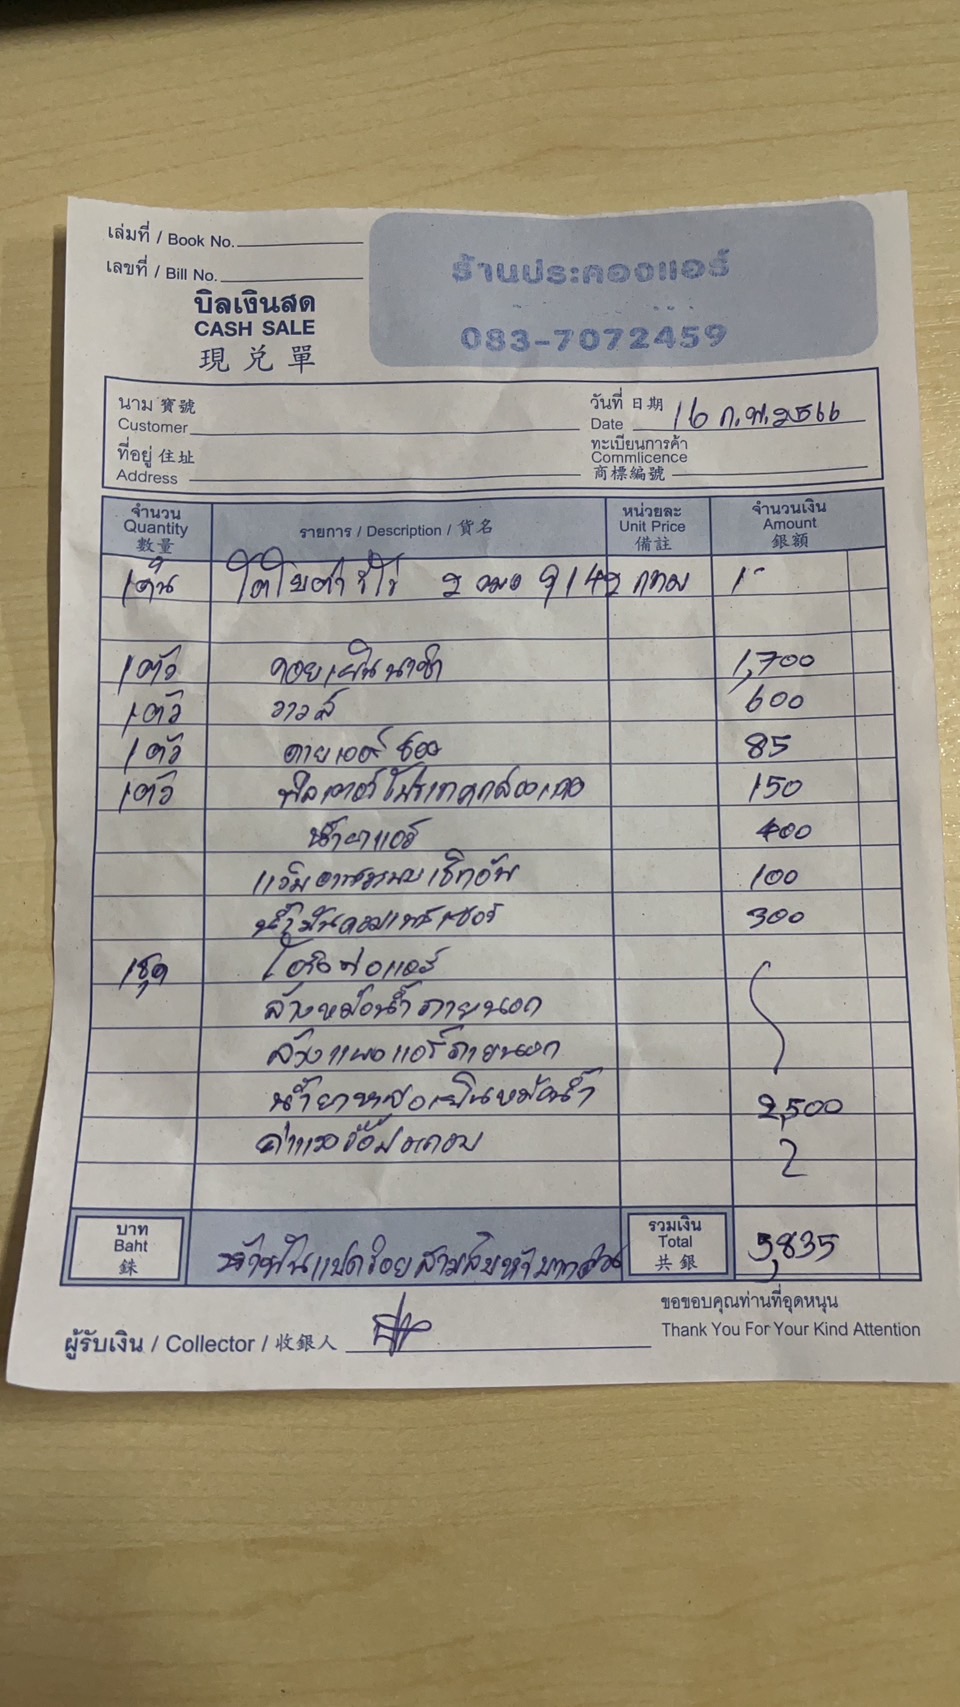 เล่มที่ / Book No.
เลขที่ / Bill No.
บิลเงินสด
CASH SALE
現兑單
ร้านประคองแอร์
083-7072459
นาม 寶號
Customer
วันที่ 日期
Date 16 ก.พ. 2566
ที่อยู่ 住址
Address
ทะเบียนการค้า
Commlicence
商標編號
จำนวน
Quantity
數量
รายการ / Description / 貨名
หน่วยละ
Unit Price
備註
จำนวนเงิน
Amount
銀額
1คัน โตโยต้า 2 9142 กทม
1ตัว คอยเย็น 1,700
1ตัว วาวล์ 600
1ตัว 85
1ตัว 150
น้ำยาแอร์ 400
100
น้ำมันคอมเพรสเซอร์ 300
1ชุด โอริงท่อแอร์
ล้างหม้อน้ำภายนอก
ล้างแผงแอร์ภายนอก
น้ำยาหล่อเย็นหม้อน้ำ 2,500
ค่าแรงรื้อประกอบ
บาท
Baht
銖
ห้าพันแปดร้อยสามสิบห้าบาทถ้วน
รวมเงิน
Total
共銀
5,835
ผู้รับเงิน / Collector / 收銀人
ขอขอบคุณท่านที่อุดหนุน
Thank You For Your Kind Attention